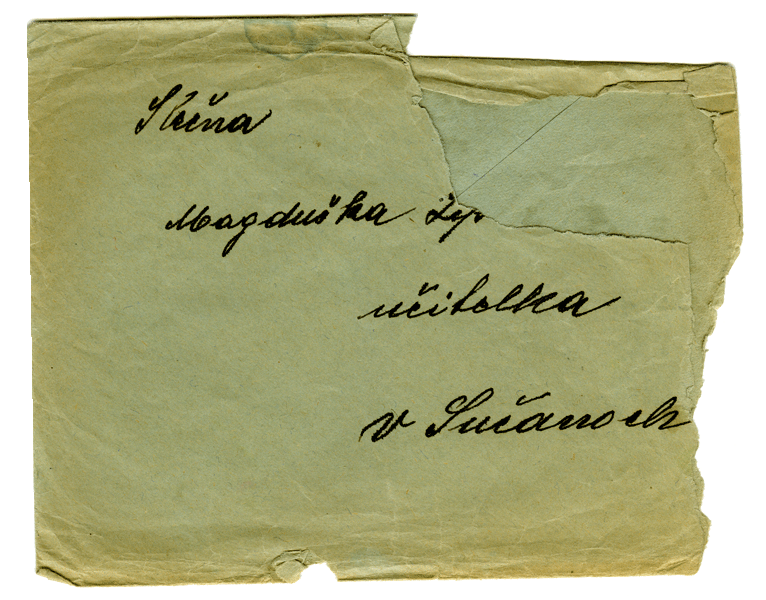 Slečna
Magduška
učitelka
v Sučanoch